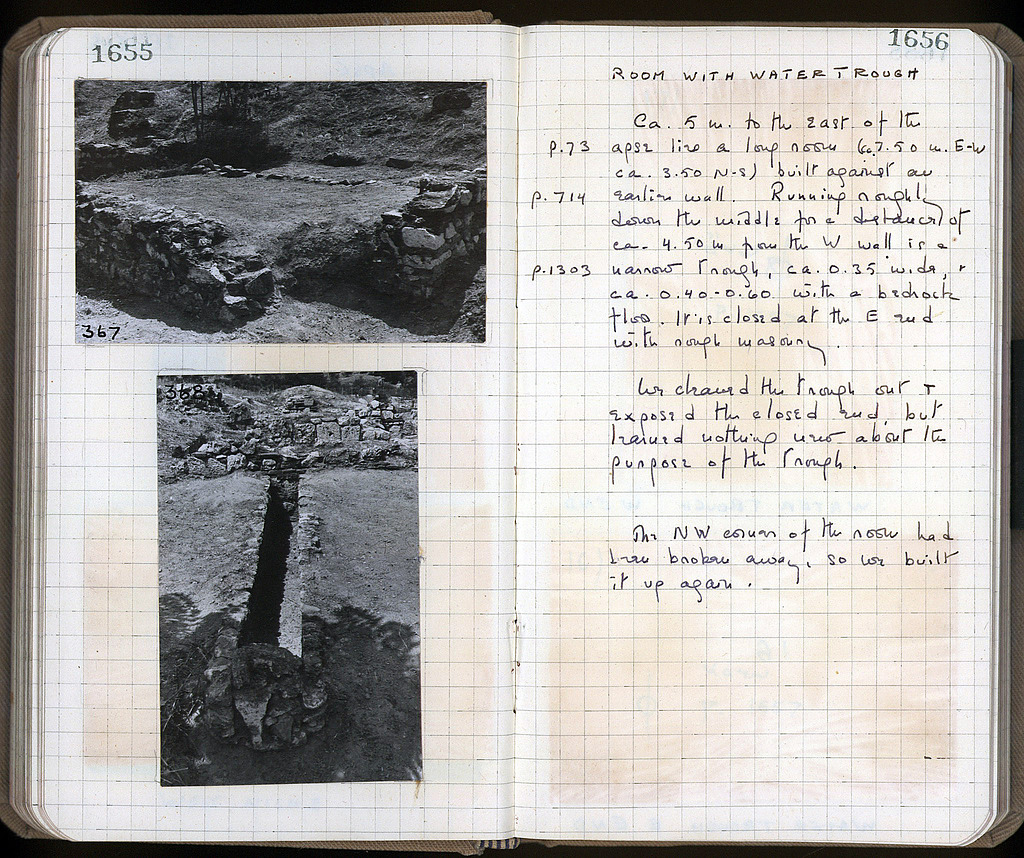 1655
367
368
1656
ROOM WITH WATER TROUGH
Ca. 5 m. to the east of the
p.73 apse lies a long room (ca. 7.50 m. E-W
ca. 3.50 N-S) built against an
p. 714 earlier wall. Running roughly
down the middle for a distance of
ca. 4.50 m from the W wall is a
p.1303 narrow trough, ca. 0.35 wide, +
ca. 0.40-0.60 with a bedrock
floor. It is closed at the E end
with rough masonry.
We cleaned the trough out +
exposed the closed end, but
learned nothing new about the
purpose of the trough.
The NW corner of the room had
been broken away, so we built
it up again.